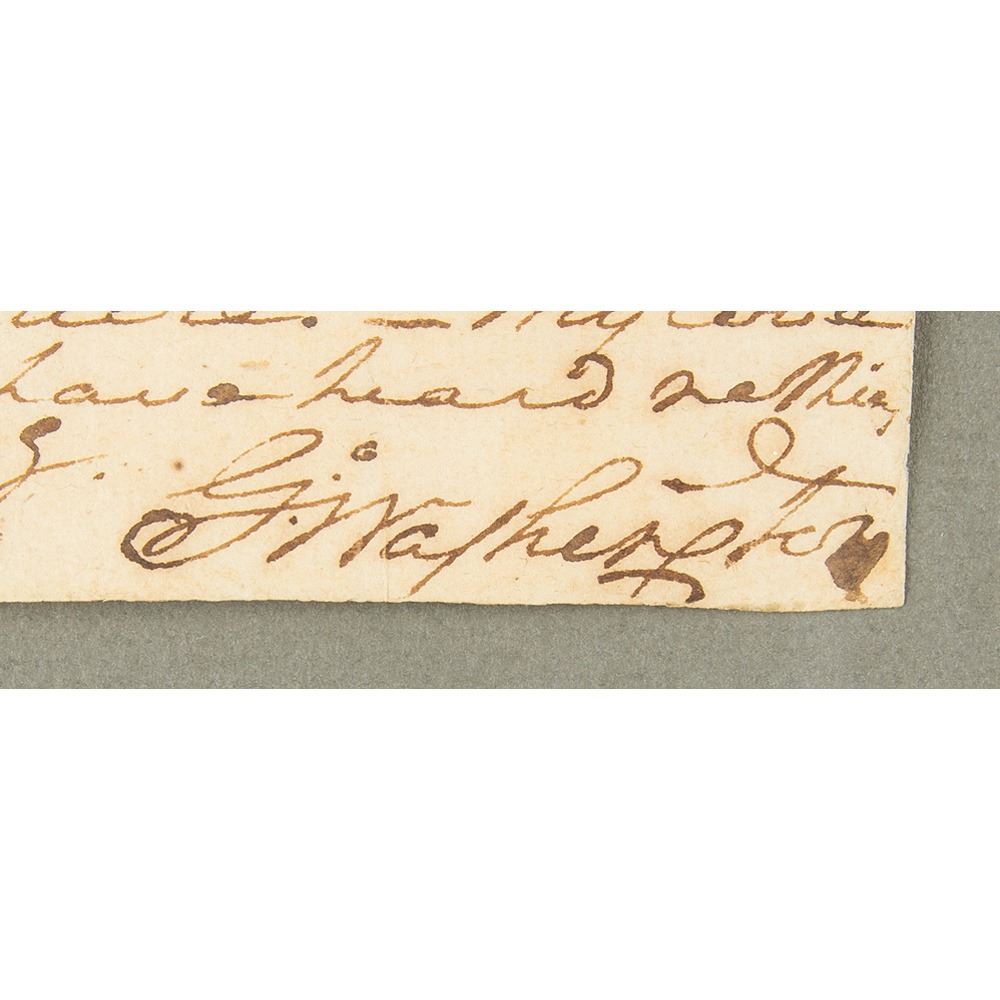 . — My love
have heard nothing
G: Washington